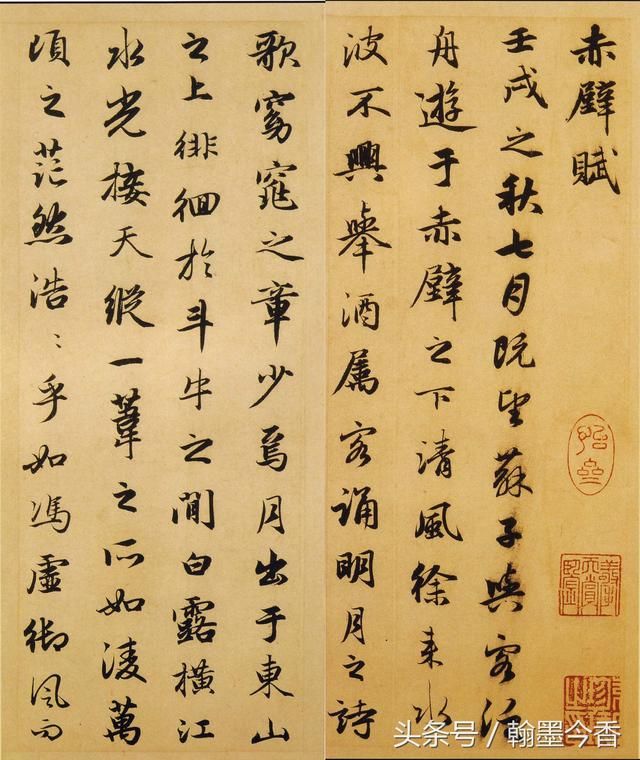 赤壁賦
壬戌之秋七月既望蘇子與客泛
舟遊于赤壁之下清風徐来水
波不興舉酒属客誦明月之詩
歌窈窕之章少焉月出于東山
之上徘徊於斗牛之間白露橫江
水光接天縱一葦之所如凌萬
頃之茫然浩〻乎如馮虛御風而
头条号／翰墨今香